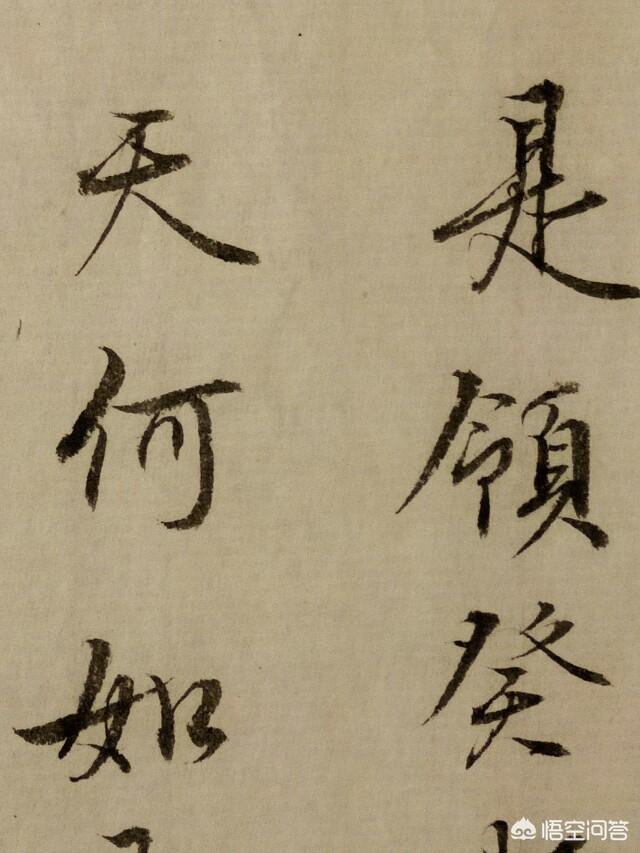 是領癸
天何如
悟空问答